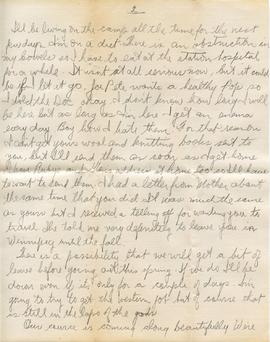 2
I'll be living on the camp all the time for the next
few days. I'm on a diet. There is an obstruction in
my bowels so I have to eat at the station hospital
for a while. It isn't at all serious now, but it could
be if I let it go, for Pete wants a healthy Pop so
I don't know how long I will
be here but as long as I'm here I get an enema
every day Boy how I hate them. For that reason
I can't get your wool and knitting books sent to
you, but I'll send them as soon as I get home
I have address at home too so I'll have
to wait to send them. I had a letter from Mother about
the same time that you did. It was much the same
as yours but I received a telling off for wanting you to
travel. She told me very definitely to leave you in
Winnipeg until the fall.
There is a possibility that we will get a bit of
leave before going out this spring. If we do I'll be
down even if it's only for a couple of days. I'm
going to try to get the western job but of course that
is still in the laps of the gods
Our course is coming along beautifully. We're